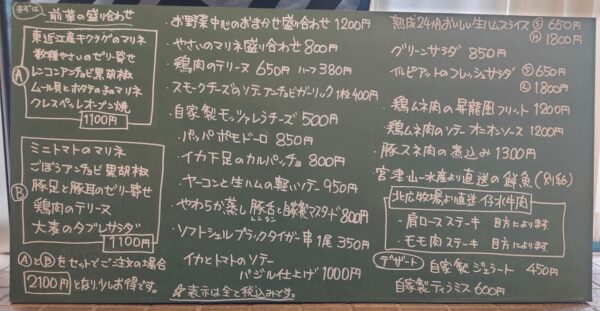 まずは
前菜の盛り合わせ
Ⓐ
東近江産キクラゲのマリネ
数種やさいのゼリー寄せ
レンコンアンチョビ黒胡椒
ムール貝とホタテの子のマリネ
クレスペッレオーブン焼
1100円
Ⓑ
ミニトマトのマリネ
ごぼうアンチョビ黒胡椒
豚足と豚耳のゼリー寄せ
鶏肉のテリーヌ
大麦のタブレサラダ
1100円
ⒶとⒷをセットでご注文の場合
2100円となり、少しお得です。
・お野菜中心のおまかせ盛り合わせ 1200円
・やさいのマリネ盛り合わせ 800円
・鶏肉のテリーヌ 650円 ハーフ 380円
・スモークチーズのソテーアンチョビガーリック 1枚 400円
・自家製モッツァレラチーズ 500円
・パッパポモドーロ 850円
・イカ下足のカルパッチョ 800円
・ヤーコンと生ハムの軽いソテー 950円
・やわらか蒸し豚舌と自家製マスタード 800円
トンタン
・ソフトシェルブラックタイガー串 1尾 350円
・イカとトマトのソテー
バジル仕上げ 1000円
☆表示は全て税込みです。
・熟成24ヵ月おいしい生ハムスライス Ⓢ 650円
Ⓜ 1800円
・グリーンサラダ 850円
・イルピアットのフレッシュサラダ Ⓢ 650円
Ⓛ 1800円
・鶏ムネ肉の昇龍風フリット 1200円
・鶏ムネ肉のソテーオニオンソース 1200円
・豚スネ肉の煮込み 1300円
・宮津山一水産より直送の鮮魚(別紙)
北広牧場より直送 仔牛肉
・肩ロースステーキ 目方によります
・モモ肉ステーキ 目方によります
デザート
自家製ジェラート 450円
自家製ティラミス 600円